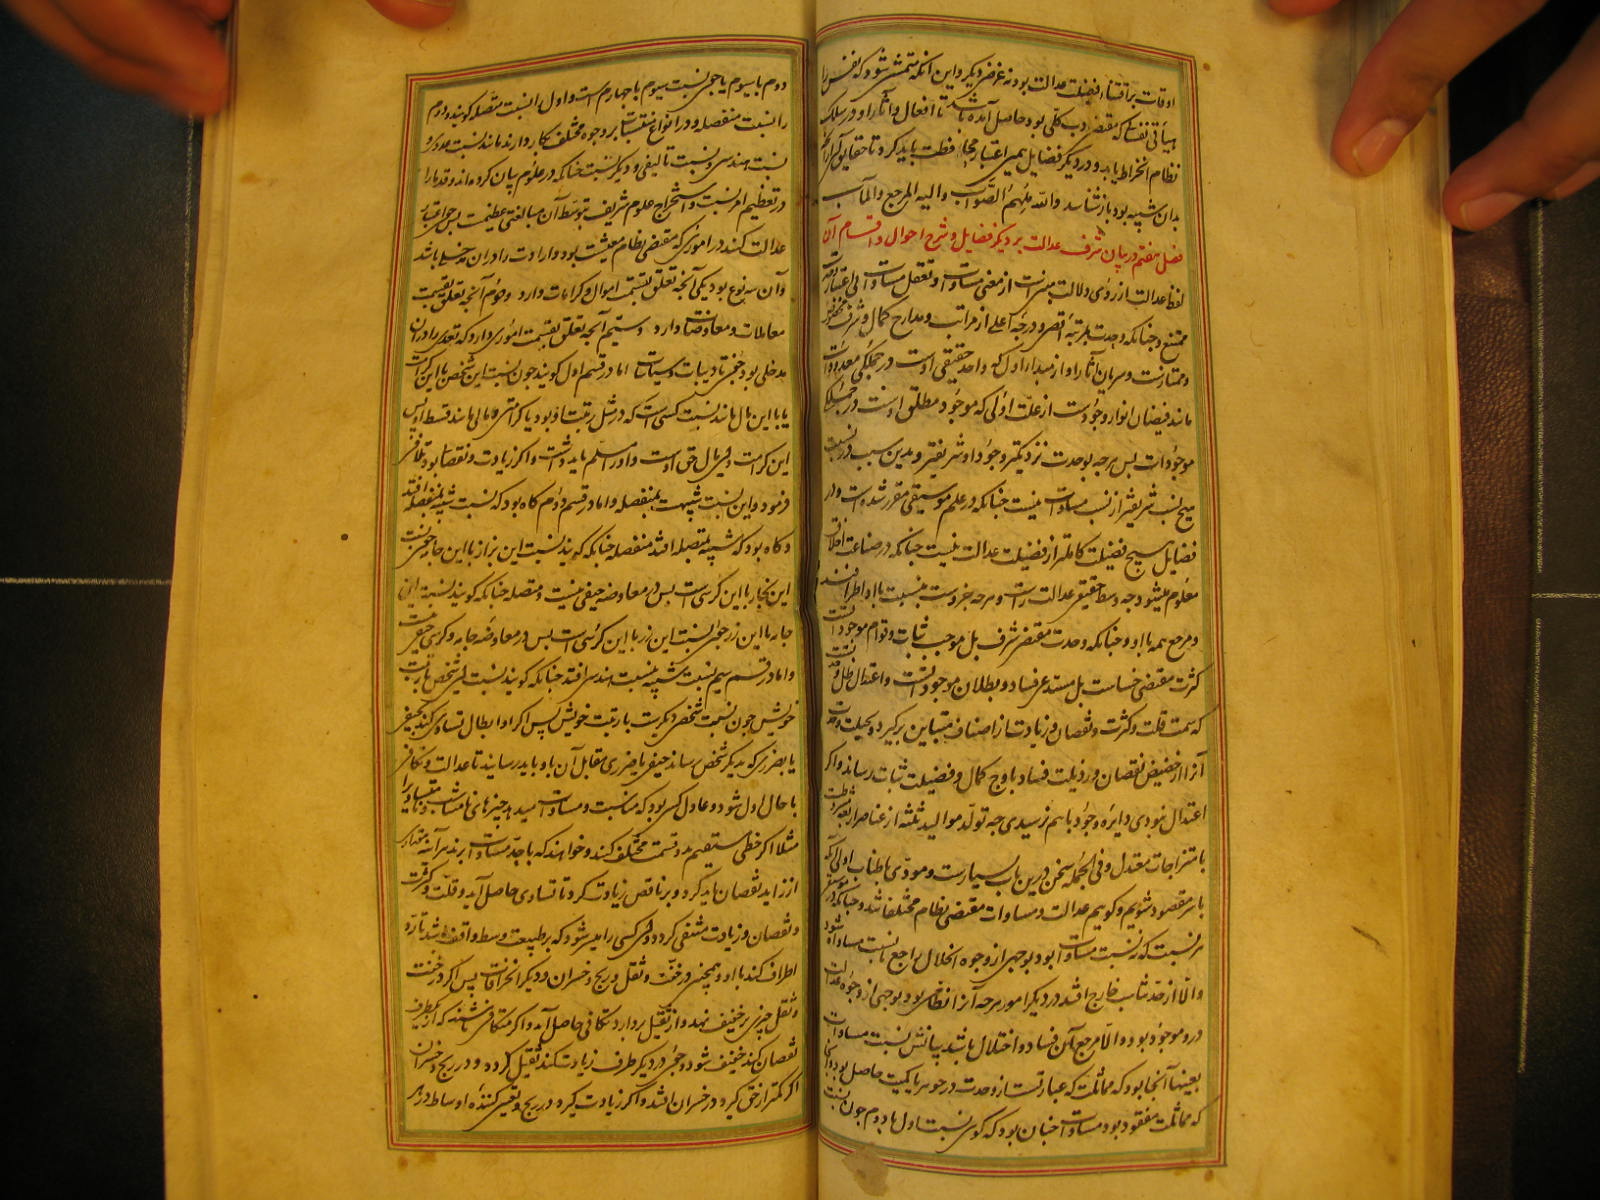 اوقات بر اقتناء فضیلت عدالت بود نه غرض دیگر و این آنکه متمشی شود که نفس را
هیأتی نفسانی که مقتضی ادب کلی بود حاصل آمده باشد تا افعال و آثار او در سلک
نظام انخراط یابد و در دیگر فضایل همین اعتبار محافظت باید کرد تا حقایق آن را از آنچه
بدان شبیه بود باز شناسد و الله ملهم الصواب و الیه المرجع و المآب
فصل هفتم در بیان شرف عدالت بر دیگر فضایل و شرح احوال و اقسام آن
لفظ عدالت از روی دلالت منبی است از معنی مساوات و تعقل مساوات بی اعتبار وحدت
ممتنع و چنانکه وحدت بمرتبه اقصی و درجه اعلی از مراتب و مدارج کمال و شرف مخصوص
و ممتاز است و سریان آثار او از مبدأ اول که واحد حقیقی اوست در جملگی معدودات
مانند فیضان انوار وجودست از علت اولی که موجود مطلق اوست در جملگی
موجودات پس هرچه بوحدت نزدیکتر وجود او شریفتر و بدین سبب در نسبت
هیچ نسبت شریفتر از نسبت مساوات نیست چنانکه در علم موسیقی مقرر شده است و در
فضایل هیچ فضیلت کاملتر از فضیلت عدالت نیست چنانکه در صناعت اخلاق
معلوم میشود چه وسط حقیقی عدالت راست و هرچه جزوست بنسبت با او اطرافند
و مرجع همه با او و چنانکه وحدت مقتضی شرف بل موجب ثبات و قوام موجوداتست
کثرت مقتضی خساست بل مستدعی فساد و بطلان موجوداتست و اعتدال ظل وحدتست
که سمت قلت و کثرت و نقصان و زیادت از اصناف متباین برگیرد و بحلیت وحدت
آنرا از حضیض نقصان و رذیلت فساد باوج کمال و فضیلت ثبات رساند و اگر
اعتدال نبودی دایره وجود باهم نرسیدی چه تولد موالید ثلثه از عناصر اربعه مشروطست
بامتزاجات معتدل و فی الجمله سخن درین باب بسیارست و مودی باطناب اولی آنکه
با سر مقصود شویم و گوییم عدالت و مساوات مقتضی نظام مختلفات اند و چنانکه در موسیقی
هر نسبت که نه نسبت مساوات بود بوجهی از وجوه انحلال راجع با نسبت مساوات شود
و الا از حد تناسب خارج افتد در دیگر امور هرچه آنرا نظامی بود بوجهی از وجوه عدالت
درو موجود بود و الا مرجع آن فساد و اختلال باشد بیانش نسبت مساوات
بعینها آنجا بود که مماثلت که عبارتست از وحدت در جوهر یا کمیت حاصل بود و آنجا
که مماثلت مفقود بود مساوات چنان بود که گویی نسبت اول با دوم چون نسبت
دوم با سیوم یا چون نسبت سیوم با چهارم است و اول را نسبت متصله گویند و دوم
را نسبت منفصله و در انواع نسبتها بر وجوه مختلف بکار دارند مانند نسبت عددی و
نسبت هندسی و نسبت تالیفی و دیگر نسبت چنانکه در علوم بیان کرده‌اند و قدما را
در تعظیم امر نسبت و استخراج علوم شریف بتوسط آن مبالغتی عظیمست پس چون اعتبار
عدالت کنند در اموری که مقتضی نظام معیشت بود و ارادت را در آن مدخلی باشد
و آن سه نوع بود یکی آنچه تعلق بقسمت اموال و کرامات دارد و دوم آنچه تعلق بقسمت
معاملات و معاوضات دارد و سیم آنچه تعلق بقسمت اموری دارد که تعدی را در آن
مدخلی بود چون تادیبات و سیاسات اما در قسم اول گویند چون نسبت این شخص با این کرامت
یا با این مال مانند نسبت کسی است که در مثل رتبت او بود با کرامتی و مالی مانند قسط او پس
این کرامت و این مال حق اوست و او را مسلم باید داشت و اگر زیادت و نقصان بود تلافی
فرمود و این نسبت شبیهست بمنفصله و اما در قسم دوم گاه بود که نسبت شبیه بمنفصله افتد
و گاه بود که شبیه بمتصله افتد منفصله چنانکه گویند نسبت این بزاز با این جامه چون نسبت
این نجار با این کرسی است پس در معاوضه حیفی نیست و متصله چنانکه گویند نسبت این
جامه با این زر چون نسبت این زر با این کرسی است پس در معاوضه جامه و کرسی حیفی نیست
و اما در قسم سیم نسبت شبیه بنسبت هندسی افتد چنانکه گویند نسبت این شخص با رتبت
خویش چون نسبت شخصی دیگرست با رتبت خویش پس اگر او ابطال تساوی کند بحیفی
یا بضرری که بدیگر شخص رساند حیفی یا ضرری مقابل آن باو باید رسانید تا عدالت و تکافی
با حال اول شود و عادل کسی بود که مناسبت و مساوات میدهد چیزهای نامتناسب و نامتساوی را
مثلا اگر خطی مستقیم بدو قسمت مختلف کنند و خواهند که با حد مساوات برند هر آینه مقداری
از زاید نقصان باید کرد و بر ناقص زیادت کرد تا تساوی حاصل آید و قلت و کثرت
و نقصان و زیادت منتفی گردد و این کسی را میسر شود که بر طبیعت وسط واقف باشد تا رد
اطراف کند با او و همچنین در خفت و ثقل و ربح و خسران و دیگر انحرافات پس اگر در خفت
و ثقل چیزی بر خفیف نهد و از ثقیل بردارد تکافی حاصل آید و اگر متکافی باشند که از یکطرف
نقصان کند خفیف شود و چون در دیگر طرف زیادت کند ثقیل گردد و در ربح و خسران
اگر کمتر از حق گیرد در خسران افتد و اگر زیادت گیرد در ربح و تعیین کننده اوساط در هر